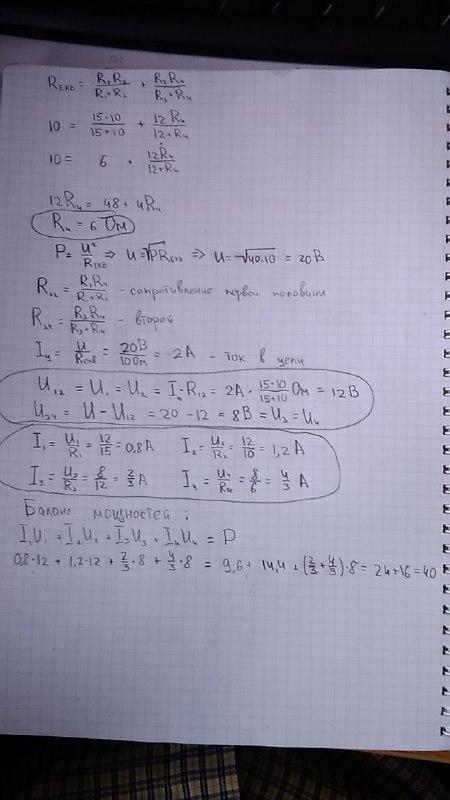 Rэкв = R₁R₂/(R₁+R₂) + R₃R₄/(R₃+R₄)
10 = 15·10/(15+10) + 12R₄/(12+R₄)
10 = 6 + 12R₄/(12+R₄)
12R₄ = 48 + 4R₄
R₄ = 6 Ом
P = U²/Rэкв ⇒ U = √PRэкв ⇒ U = √40·10 = 20 В
R₁₂ = R₁R₂/(R₁+R₂) - сопротивление первой половины
R₃₄ = R₃R₄/(R₃+R₄) - второй
Iц = U/Rэкв = 20В/10Ом = 2А - ток в цепи
U₁₂ = U₁ = U₂ = Iц·R₁₂ = 2А · 15·10/(15+10) Ом = 12 В
U₃₄ = U - U₁₂ = 20 - 12 = 8 В = U₃ = U₄
I₁ = U₁/R₁ = 12/15 = 0,8 А I₂ = U₂/R₂ = 12/10 = 1,2 А
I₃ = U₃/R₃ = 8/12 = 2/3 А I₄ = U₄/R₄ = 8/6 = 4/3 А
Баланс мощностей:
I₁U₁ + I₂U₂ + I₃U₃ + I₄U₄ = P
0,8·12 + 1,2·12 + 2/3·8 + 4/3·8 = 9,6 + 14,4 + (2/3 + 4/3)·8 = 24+16 = 40